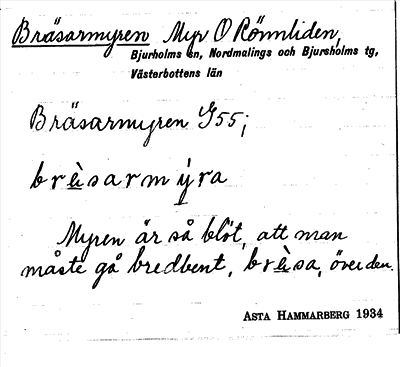 Bräsarmyren Myr O Rönnliden,
Bjurholms sn, Nordmalings och Bjurholms tg,
Västerbottens län
Bräsarmyren G55;
brèsarmýra
Myren är så blöt, att man
måste gå bredbent, brèsa, över den.
ASTA HAMMARBERG 1934